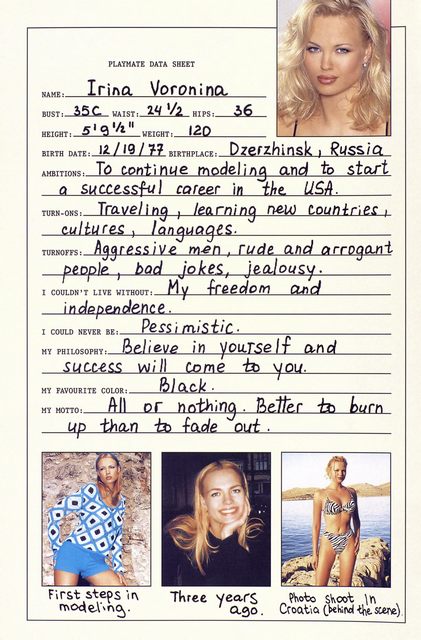 PLAYMATE DATA SHEET
NAME: Irina Voronina
BUST: 35C WAIST: 24 1/2 HIPS: 36
HEIGHT: 5'9 1/2" WEIGHT: 120
BIRTH DATE: 12/19/77 BIRTHPLACE: Dzerzhinsk, Russia
AMBITIONS: To continue modeling and to start
a successful career in the USA.
TURN-ONS: Traveling, learning new countries,
cultures, languages.
TURNOFFS: Aggressive men, rude and arrogant
people, bad jokes, jealousy.
I COULDN'T LIVE WITHOUT: My freedom and
independence.
I COULD NEVER BE: Pessimistic.
MY PHILOSOPHY: Believe in yourself and
success will come to you.
MY FAVOURITE COLOR: Black.
MY MOTTO: All or nothing. Better to burn
up than to fade out.
First steps in
modeling.
Three years
ago.
Photo shoot in
Croatia (behind the scene).